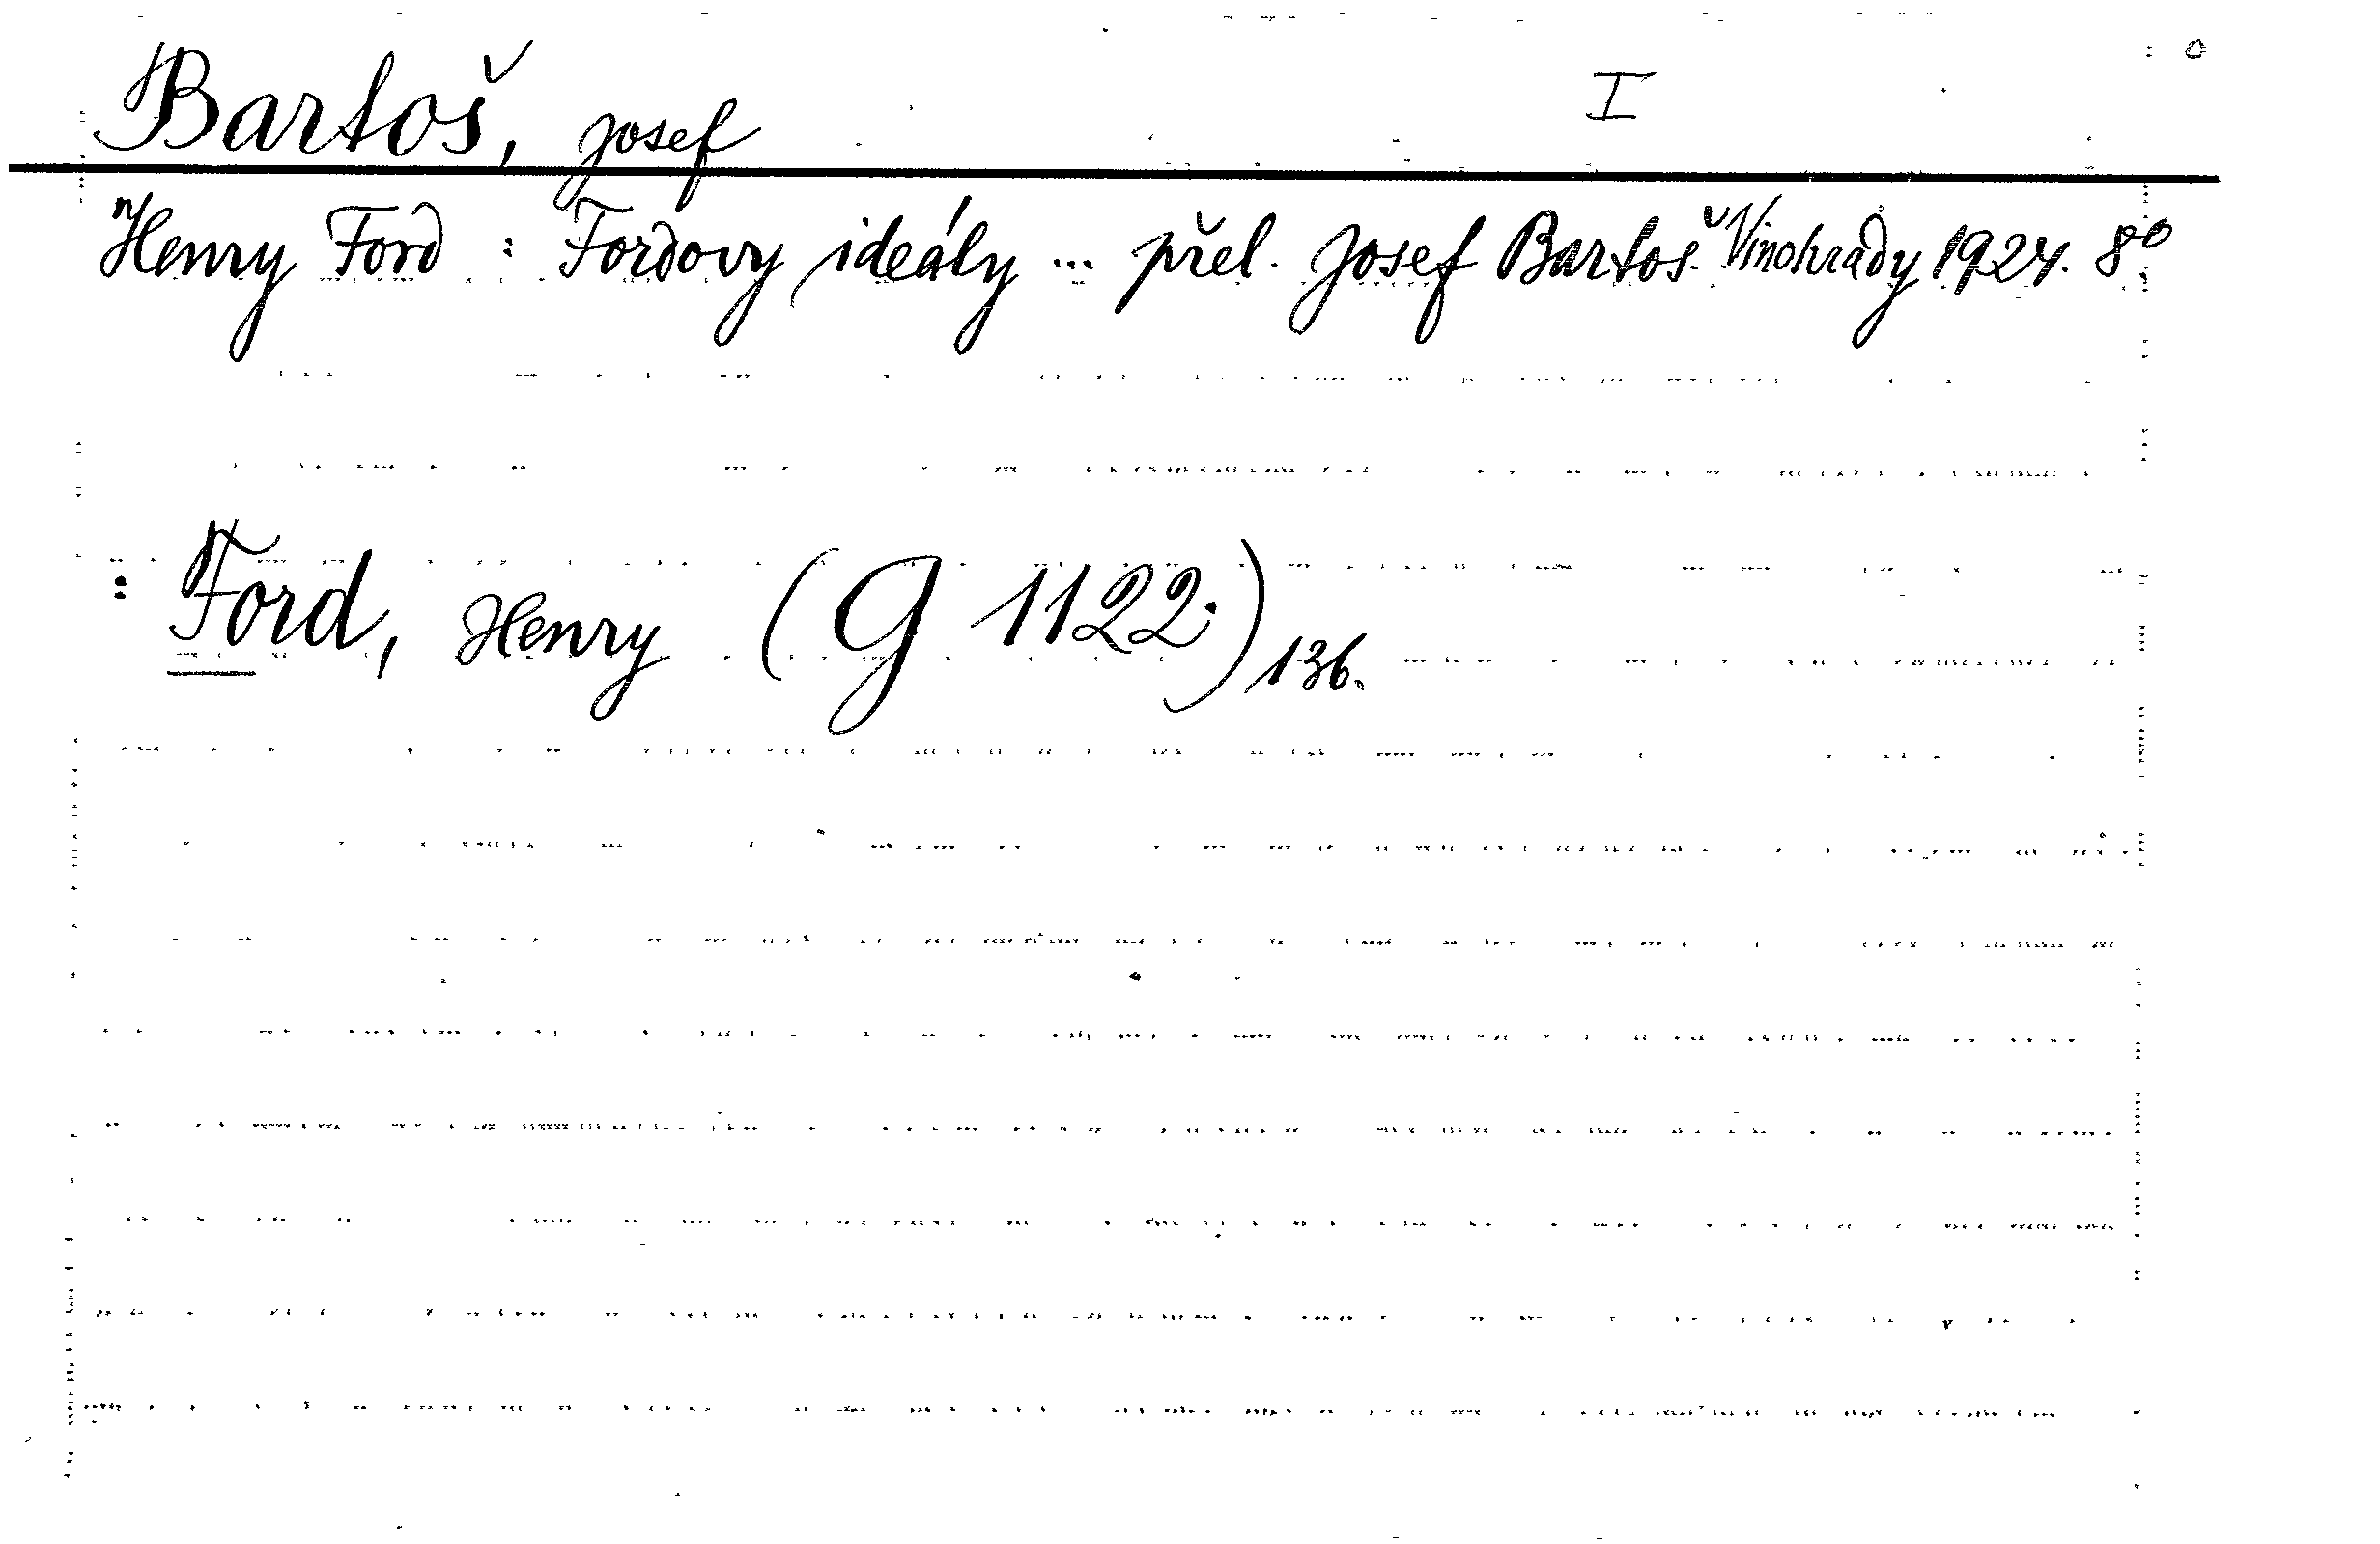 Bartoš, Josef I
Henry Ford : Fordovy ideály ... přel. Josef Bartoš. Vinohrady 1924. 8°
: Ford, Henry (G 1122.) 136.